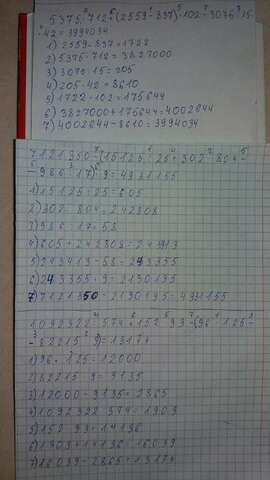 5375·712+(2559-837)·102-3075:15·
·42=3994034
1) 2559-837=1722
2) 5375·712=3827000
3) 3075:15=205
4) 205·42=8610
5) 1722·102=175644
6) 3827000+175644=4002644
7) 4002644-8610=3994034
7121350-(15125:25+302·804-
-986:17)·9=4931155
1) 15125:25=605
2) 302·804=242808
3) 986:17=58
4) 605+242808=243413
5) 243413-58=243355
6) 243355·9=2190195
7) 7121350-2190195=4931155
1092322:574+152·93-(96·125-
-82215:9)=13174
1) 96·125=12000
2) 82215:9=9135
3) 12000-9135=2865
4) 1092322:574=1903
5) 152·93=14136
6) 1903+14136=16039
7) 16039-2865=13174